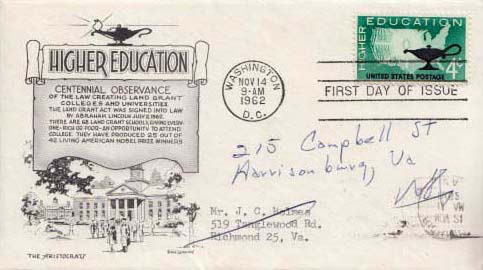 HIGHER EDUCATION
CENTENNIAL OBSERVANCE
OF THE LAW CREATING LAND GRANT
COLLEGES AND UNIVERSITIES
THE LAND GRANT ACT WAS SIGNED INTO LAW
BY ABRAHAM LINCOLN JULY 2, 1862.
THERE ARE 68 LAND GRANT SCHOOLS, GIVING EVERY-
ONE-RICH OR POOR-AN OPPORTUNITY TO ATTEND
COLLEGE. THEY HAVE PRODUCED 25 OUT OF
42 LIVING AMERICAN NOBEL PRIZE WINNERS
THE ARISTOCRATS
WASHINGTON
NOV 14
9-AM
1962
D.C.
HIGHER EDUCATION
UNITED STATES POSTAGE
4¢
FIRST DAY OF ISSUE
215 Campbell St
Harrisonburg, Va
Mr. J. C. Holmes
519 Tanglewood Rd.
Richmond 25, Va.